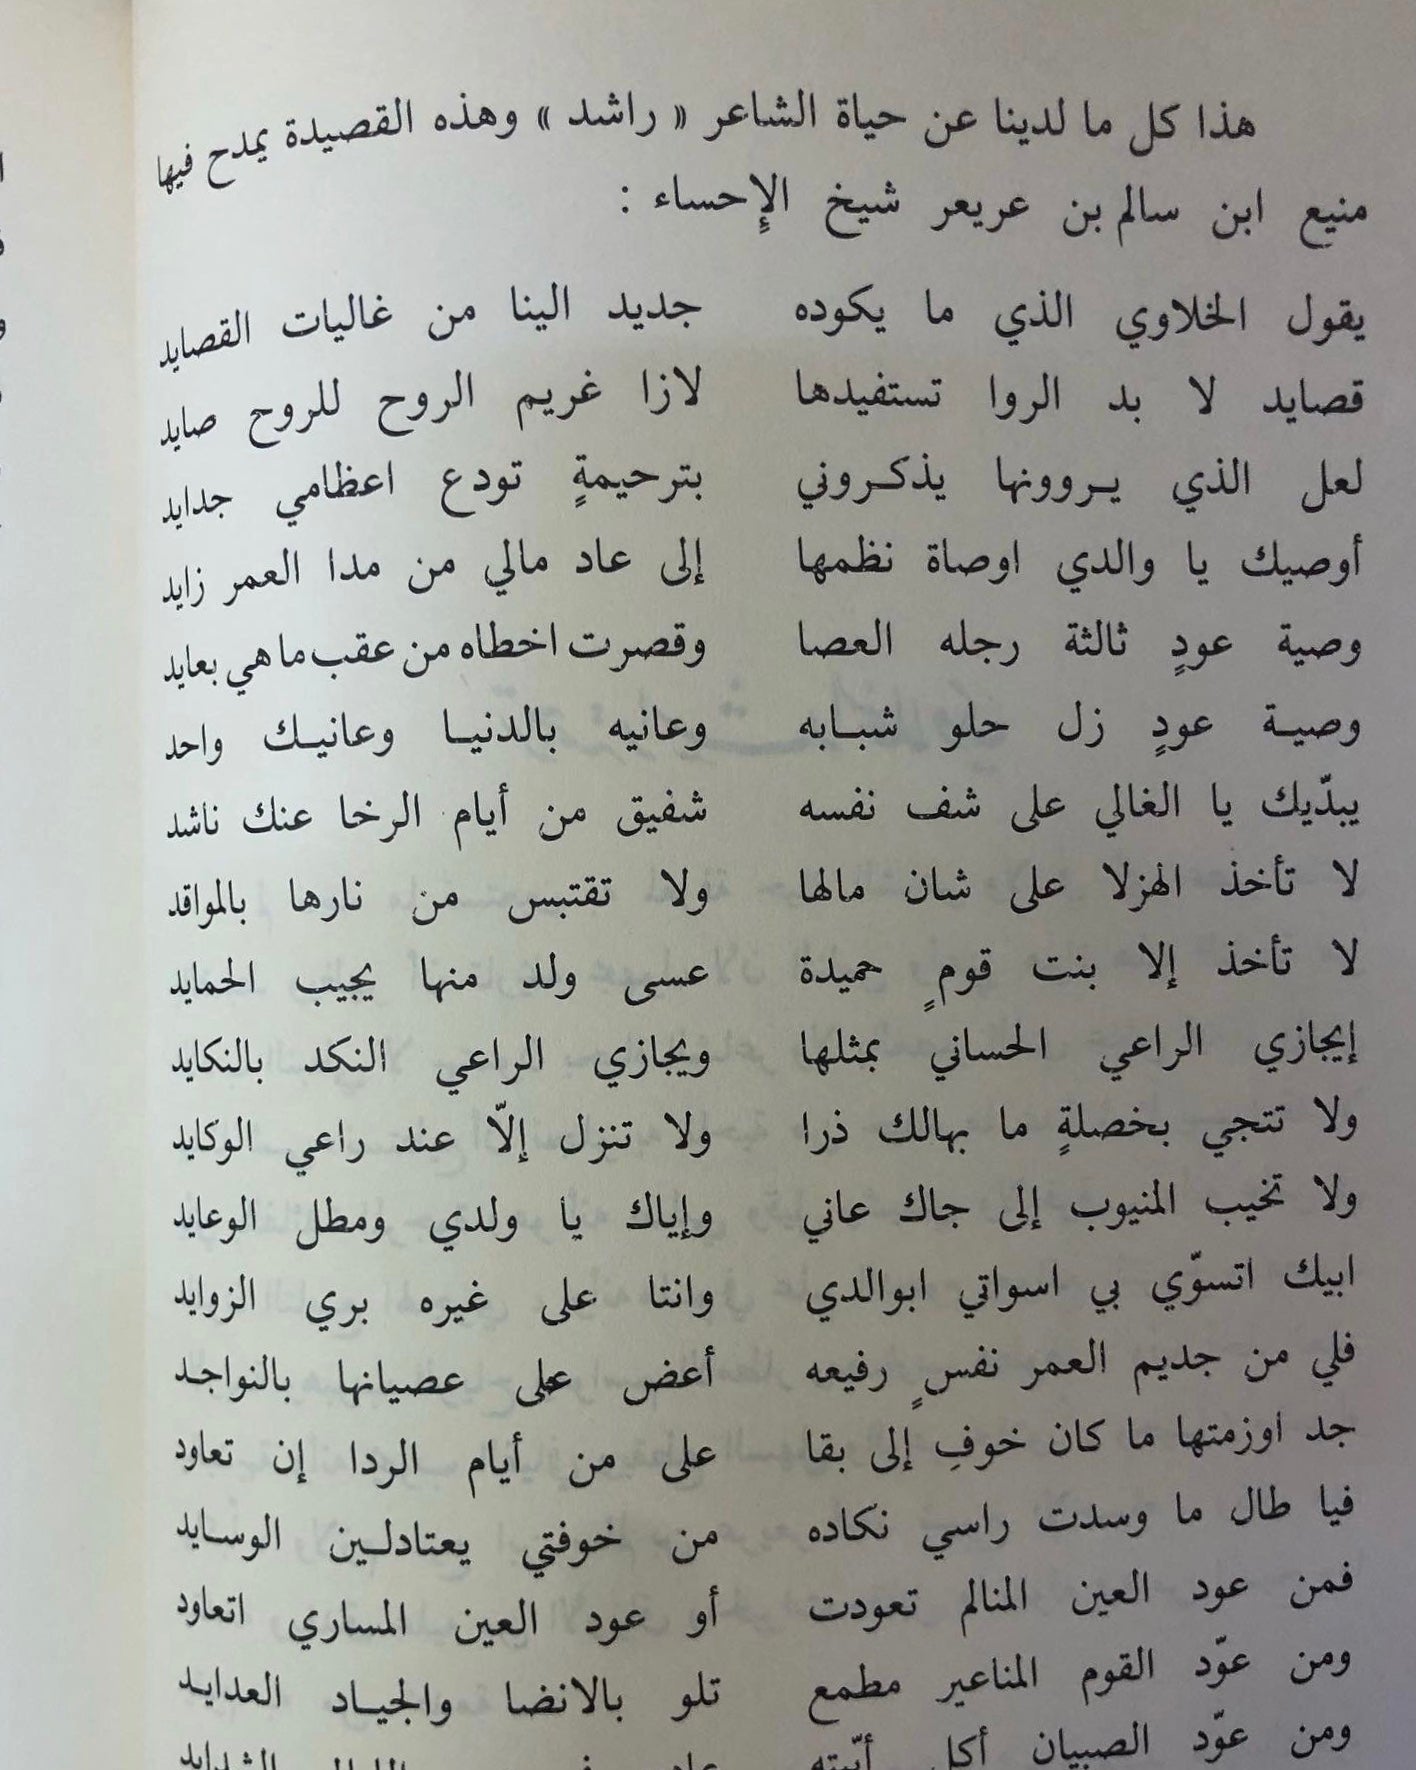 هذا كل ما لدينا عن حياة الشاعر « راشد » وهذه القصيدة يمدح فيها
منيع ابن سالم بن عريعر شيخ الإحساء :
يقول الخلاوي الذي ما يكوده جديد الينا من غاليات القصايد
قصايد لا بد الروا تستفيدها لازا غريم الروح للروح صايد
لعل الذي يروونها يذكروني بترحيمةٍ تودع اعظامي جدايد
أوصيك يا والدي اوصاة نظمها إلى عاد مالي من مدا العمر زايد
وصية عودٍ ثالثة رجله العصا وقصرت اخطاه من عقب ما هي بعايد
وصية عودٍ زل حلو شبابه وعانيه بالدنيا وعانيك واحد
يبدّيك يا الغالي على شف نفسه شفيق من أيام الرخا عنك ناشد
لا تأخذ الهزلا على شان مالها ولا تقتبس من نارها بالمواقد
لا تأخذ إلا بنت قومٍ حميدة عسى ولد منها يجيب الحمايد
إيجازي الراعي الحساني بمثلها ويجازي الراعي النكد بالنكايد
ولا تتجي بخصلةٍ ما بهالك ذرا ولا تنزل إلاّ عند راعي الوكايد
ولا تخيب المنيوب إلى جاك عاني وإياك يا ولدي ومطل الوعايد
ابيك اتسوّي بي اسواتي ابوالدي وانتا على غيره بري الزوايد
فلي من جديم العمر نفسٍ رفيعه أعض على عصيانها بالنواجد
جد اوزمتها ما كان خوفِ إلى بقا على من أيام الردا إن تعاود
فيا طال ما وسدت راسي نكاده من خوفتي يعتادلين الوسايد
فمن عود العين المنالم تعودت أو عود العين المساري اتعاود
ومن عوّد القوم المناعير مطمع تلو بالانضا والجياد العدايد
ومن عوّد الصبيان أكل